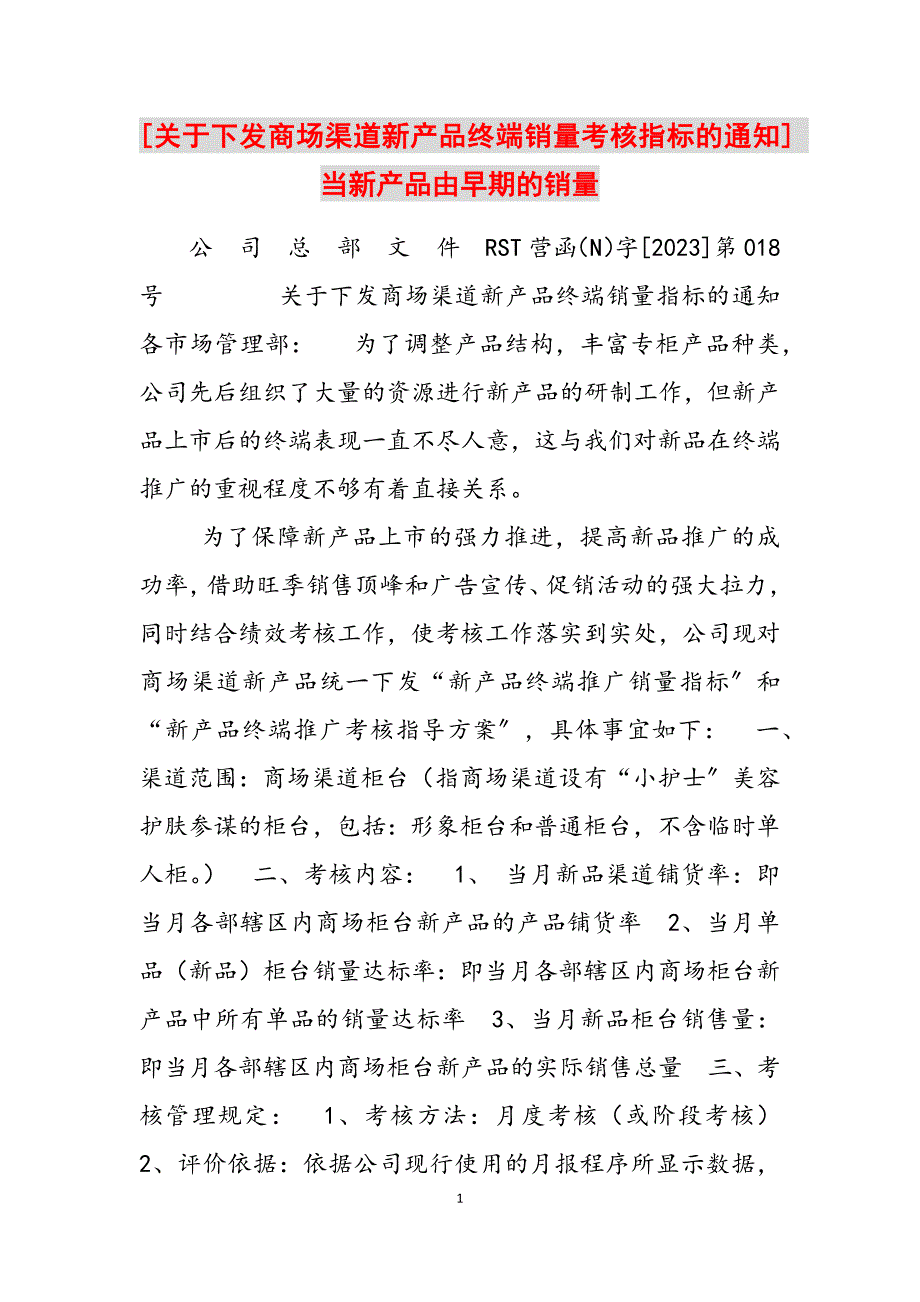 [关于下发商场渠道新产品终端销量考核指标的通知]
当新产品由早期的销量
公 司 总 部 文 件 RST营函(N)字[2023]第018
号 关于下发商场渠道新产品终端销量指标的通知
各市场管理部： 为了调整产品结构，丰富专柜产品种类，
公司先后组织了大量的资源进行新产品的研制工作，但新产
品上市后的终端表现一直不尽人意，这与我们对新品在终端
推广的重视程度不够有着直接关系。
为了保障新产品上市的强力推进，提高新品推广的成
功率，借助旺季销售顶峰和广告宣传、促销活动的强大拉力，
同时结合绩效考核工作，使考核工作落实到实处，公司现对
商场渠道新产品统一下发“新产品终端推广销量指标〞和
“新产品终端推广考核指导方案〞，具体事宜如下： 一、
渠道范围：商场渠道柜台（指商场渠道设有“小护士〞美容
护肤参谋的柜台，包括：形象柜台和普通柜台，不含临时单
人柜。） 二、考核内容： 1、 当月新品渠道铺货率：即
当月各部辖区内商场柜台新产品的产品铺货率 2、当月单
品（新品）柜台销量达标率：即当月各部辖区内商场柜台新
产品中所有单品的销量达标率 3、当月新品柜台销售量：
即当月各部辖区内商场柜台新产品的实际销售总量 三、考
核管理规定： 1、考核方法：月度考核（或阶段考核）
2、评价依据：依据公司现行使用的月报程序所显示数据，
1